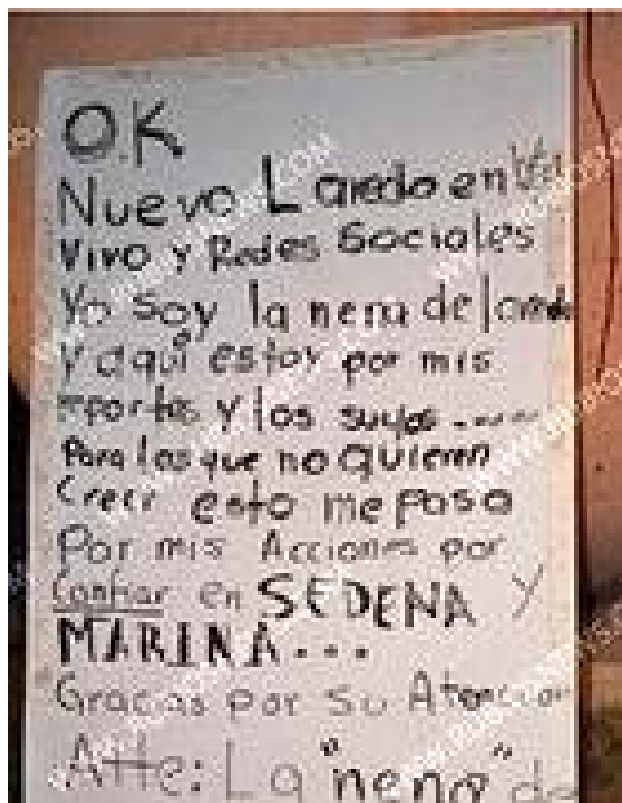 O.K
Nuevo Laredo en
Vivo y Redes Sociales
Yo soy la nena de laredo
Y aqui estoy por mis
reportes y los suyos.....
Para los que no quieren
Creer esto me paso
Por mis Acciones por
Confiar en SEDENA Y
MARINA...
Gracias por su Atencion
Atte: La "nena" de